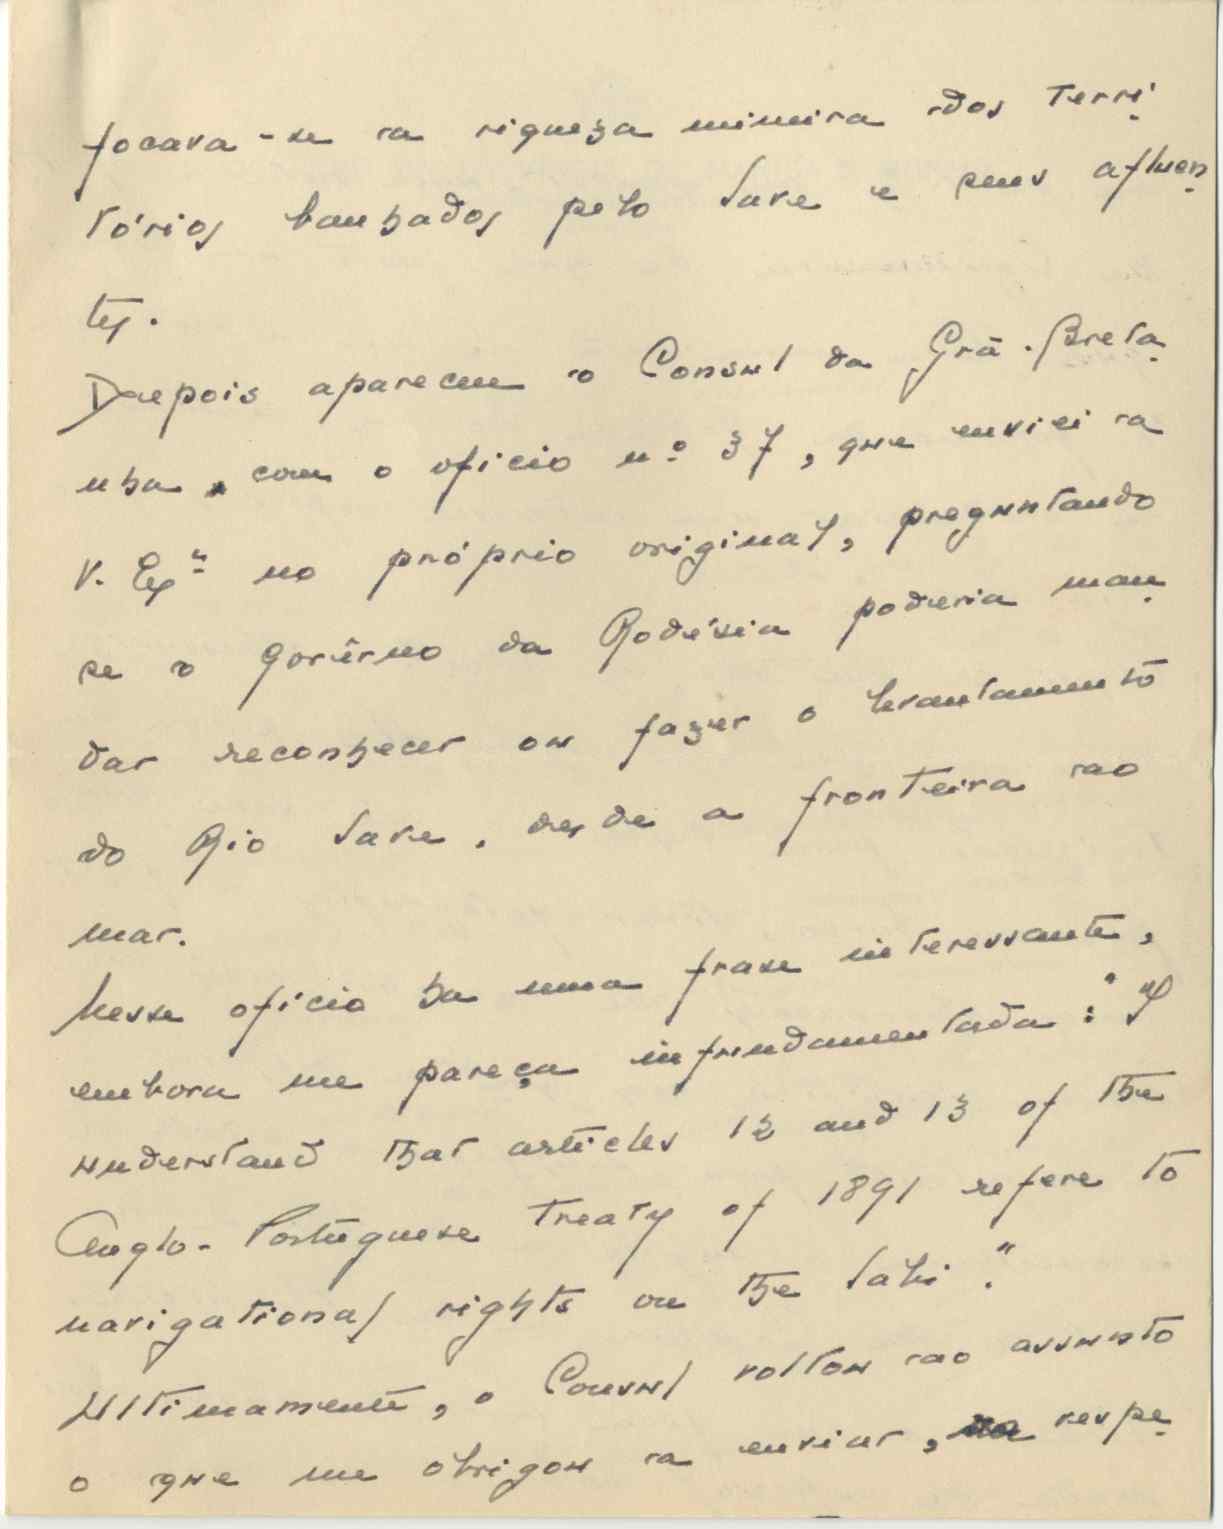 focava-se a riqueza mineira dos terri-
tórios banhados pelo Save e seus afluen-
tes.
Depois apareceu o Consul da Grã-Breta-
nha, com o oficio nº 37, que enviei a
V. Exª no próprio original, preguntando
se o Govêrno da Rodésia poderia man-
dar reconhecer ou fazer o levantamento
do Rio Save, desde a fronteira ao
mar.
Nesse oficio ha uma frase interessante,
embora me pareça infundamentada: "I
understand that articles 12 and 13 of the
Anglo-Portuguese Treaty of 1891 refere to
navigational rights on the Sabi."
Ultimamente, o Consul voltou ao assunto
o que me obrigou a enviar, respe-